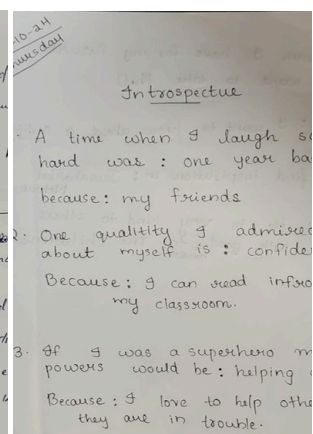 10-24
Thursday
Introspectue
A time when I laugh
hard was : one year
because : my friends
2. One qualitity I admired
about myself is :
Because : I can read
my classroom.
3. If I was a superhero
powers would be : helping
Because : I love to help
they are in trouble.